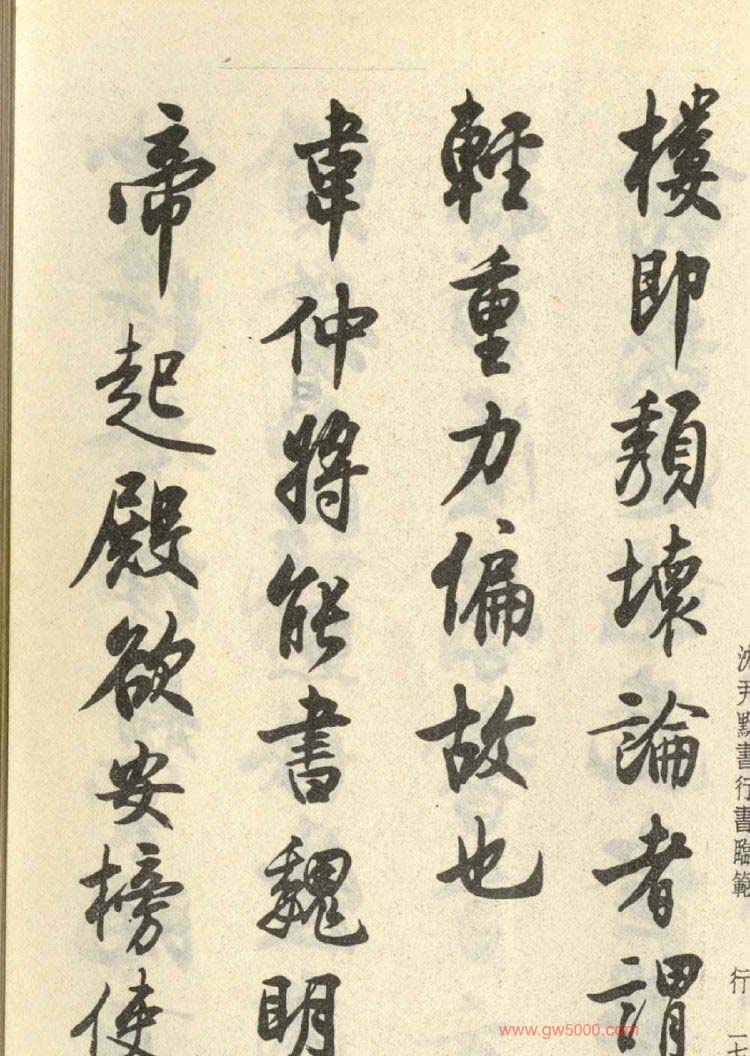 樓即頹壞論者謂
輕重力偏故也
韋仲將能書魏明
帝起殿欲安榜使
沈尹默書行書臨範
行
一七
www.gw5000.com